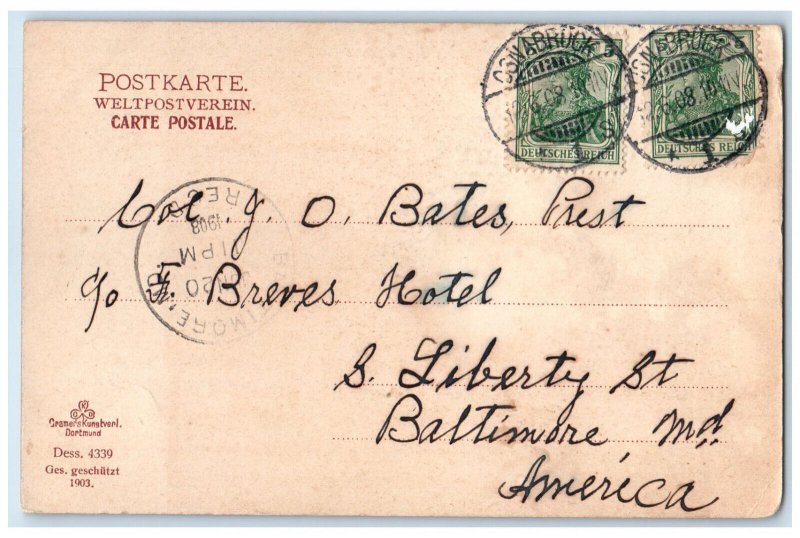 POSTKARTE.
WELTPOSTVEREIN.
CARTE POSTALE.
OSNABRÜCK
08
* 1 S
DEUTSCHES REICH
OSNABRÜCK
6.08
* 1
DEUTSCHES REICH
REC'D
1908
1 PM
20
BALTIMORE, MD
Col. J. O. Bates, Prest
c/o F. Breves Hotel
S. Liberty St
Baltimore Md.
America
Cramers Kunstverl.
Dortmund
Dess. 4339
Ges. geschützt
1903.